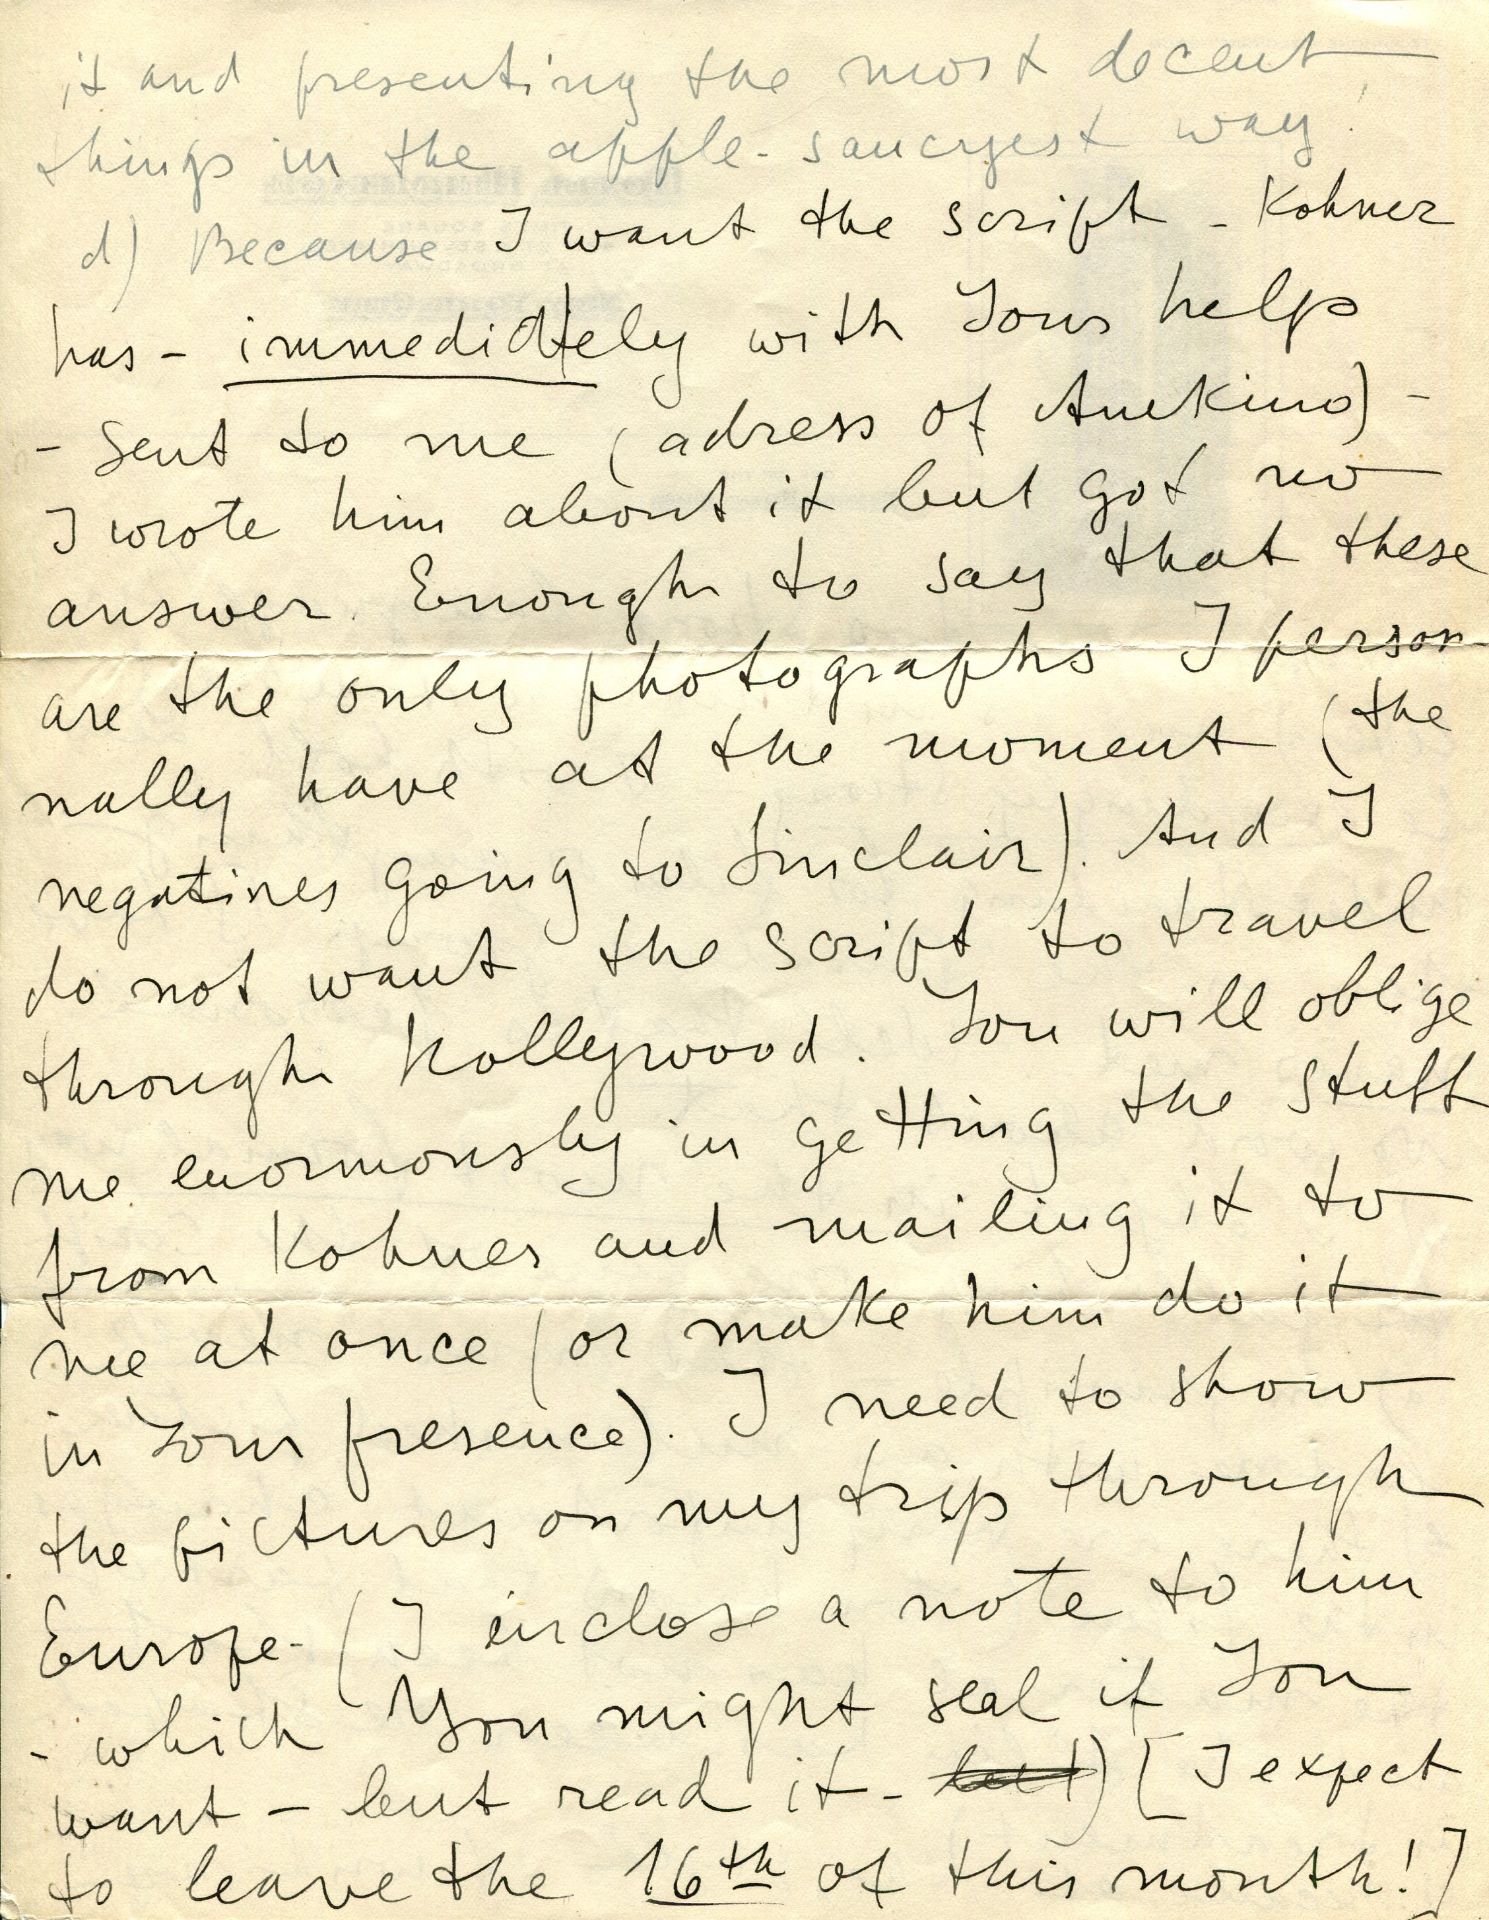 it and presenting the most decent
things in the apple-saucyest way!
d) Because I want the script - Kohner
has - immediately with Your help
- sent to me (adress of Amkino) -
I wrote him about it but got no
answer. Enough to say that these
are the only photographs I person-
nally have at the moment (the
negatives going to Sinclair). And I
do not want the script to travel
through Hollywood. You will oblige
me enormously in getting the stuff
from Kohner and mailing it to
me at once (or make him do it
in Your presence). I need to show
the pictures on my trip through
Europe - (I inclose a note to him
- which You might seal if You
want - but read it - ) [I expect
to leave the 16th of this month!]